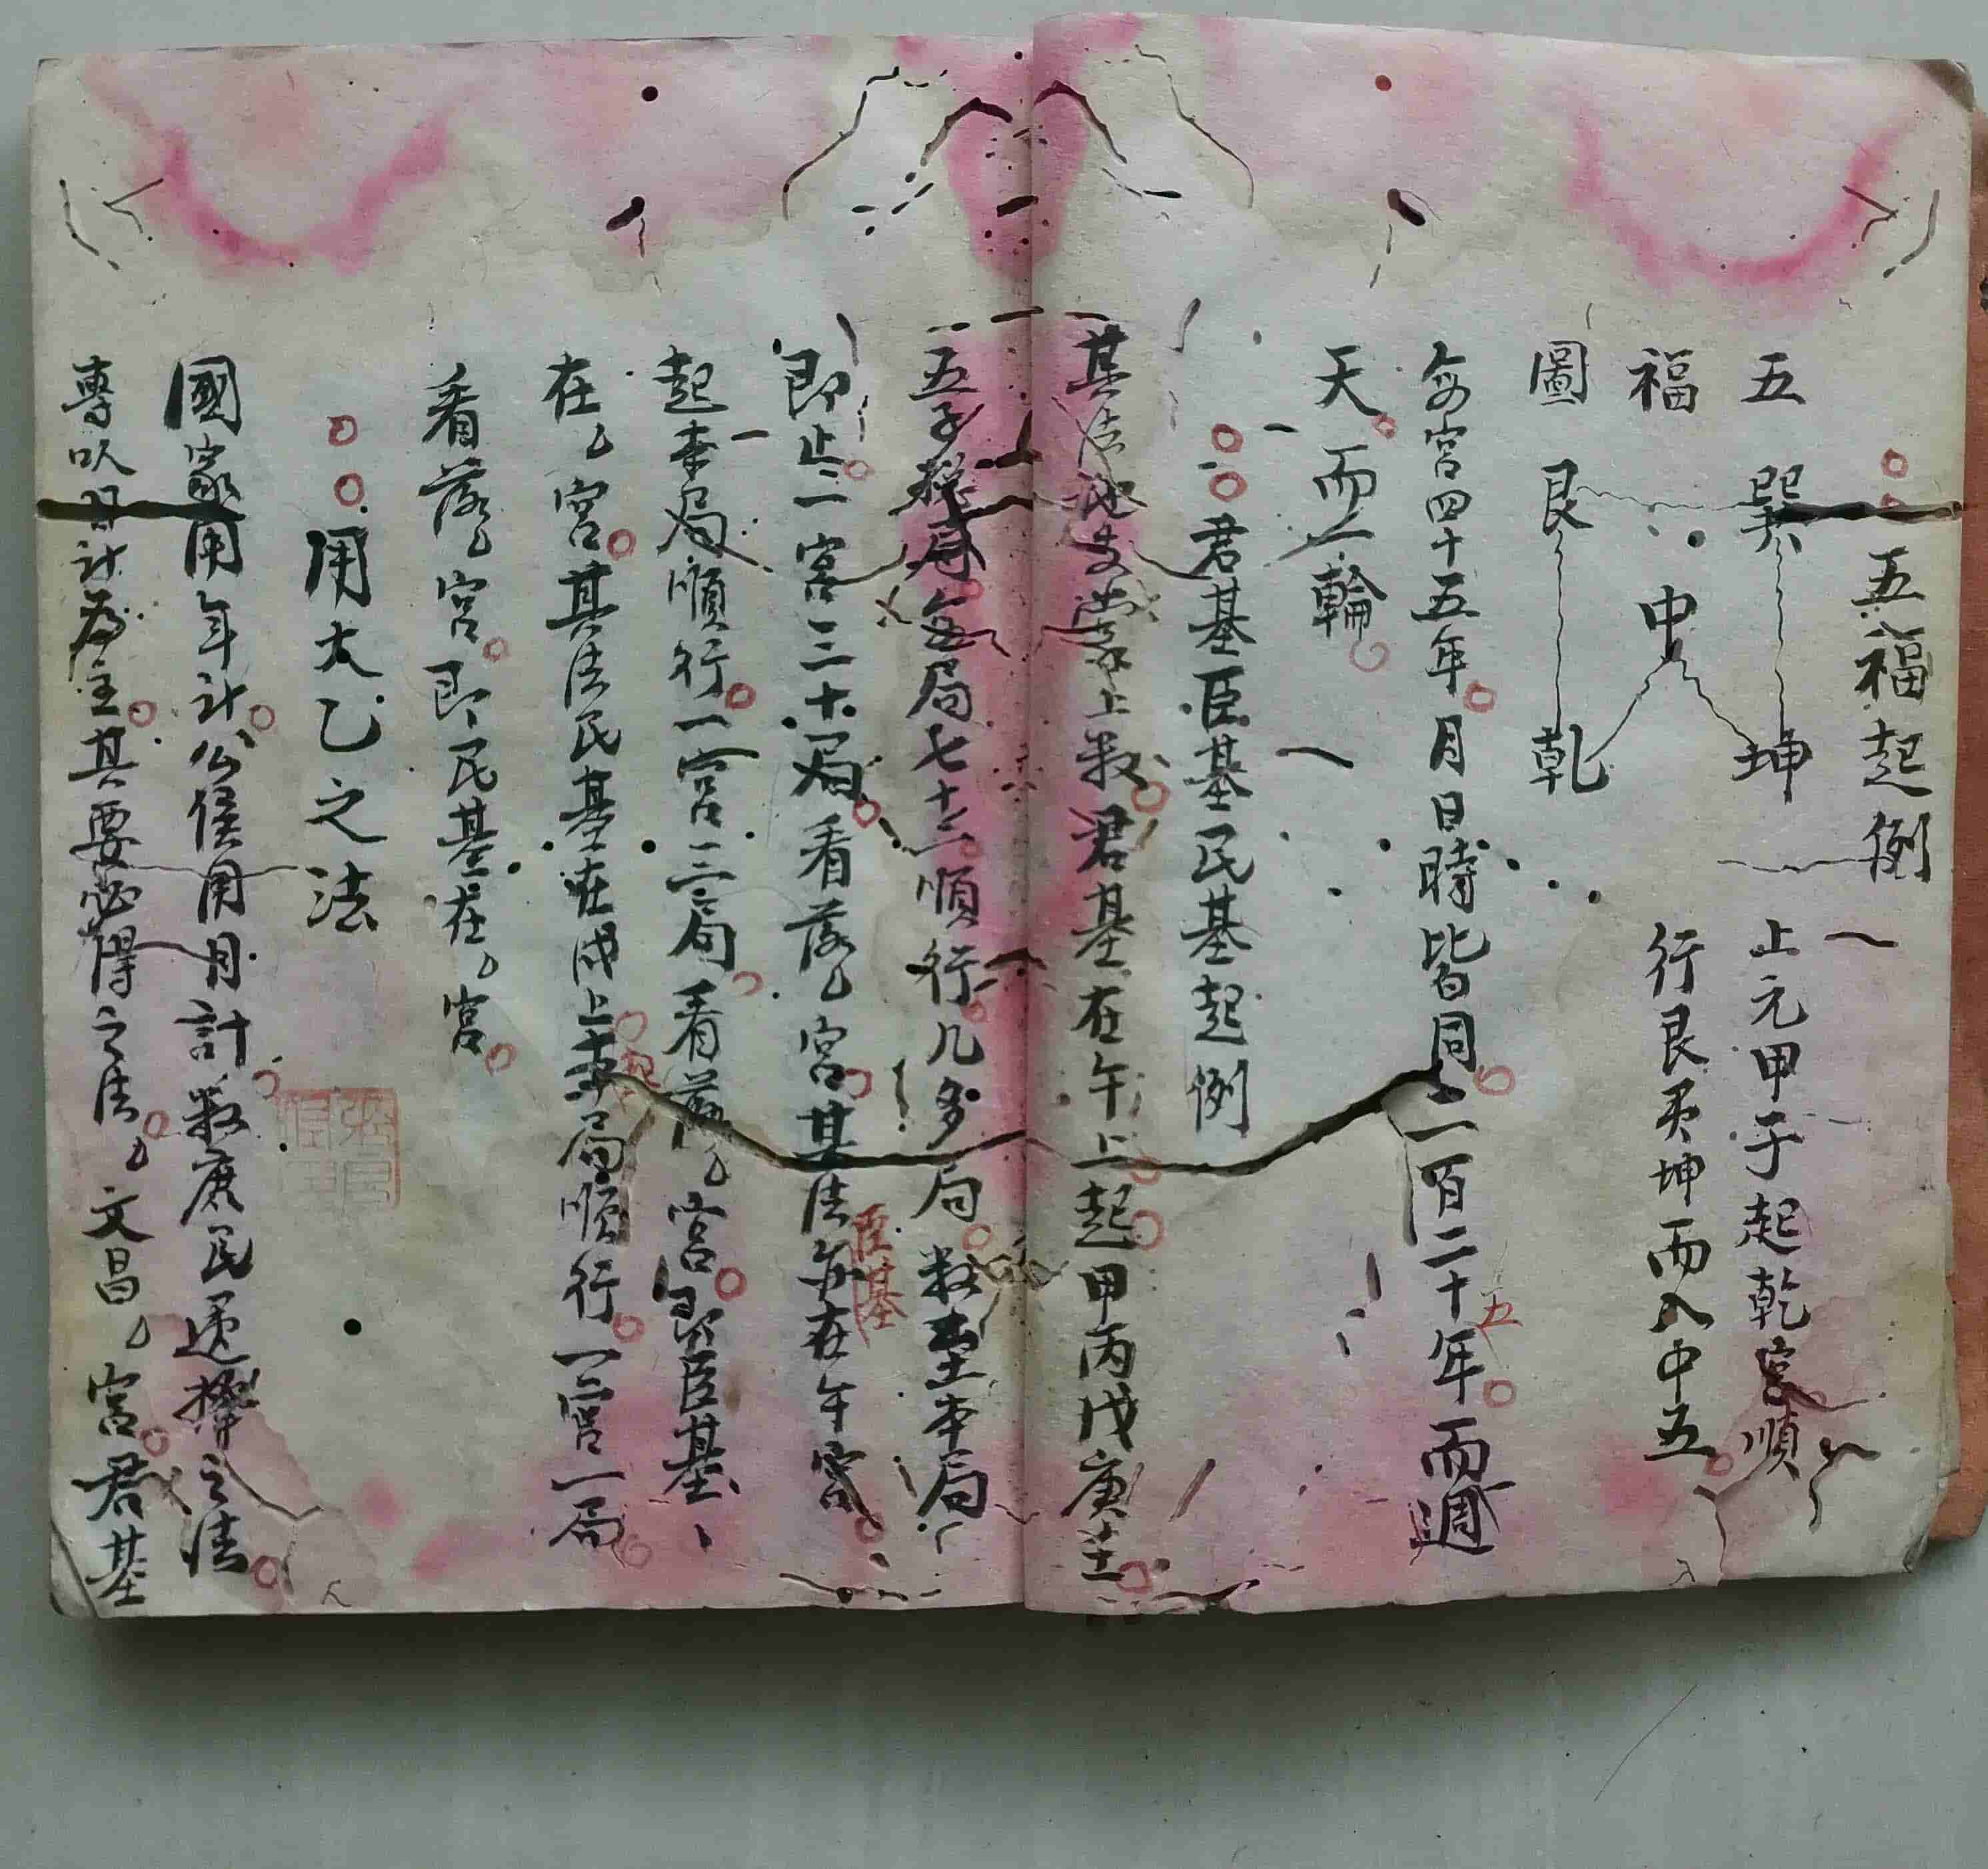 五福起例
五 巽 坤 上元甲子起乾宮順
福 中 行艮巽坤而入中五
圖 艮 乾
每宮四十五年月日時皆同二百二十五年而週
天而一輪
君基臣基民基起例
其法地支掌上數君基在午上起甲丙戊庚壬
五子 局每局七十二順行几多局數至本局
即止一宮三十局看落乙宮其法臣基亦在午宮
起本局順行一宮三局看落乙宮即臣基
在乙宮其法民基在戌上起本局順行一宮一局
看落乙宮即民基在乙宮
用太乙之法
國家用年計公侯用月計數庶民選擇之法
專以日計為主其要必得之法乙文昌乙宮君基